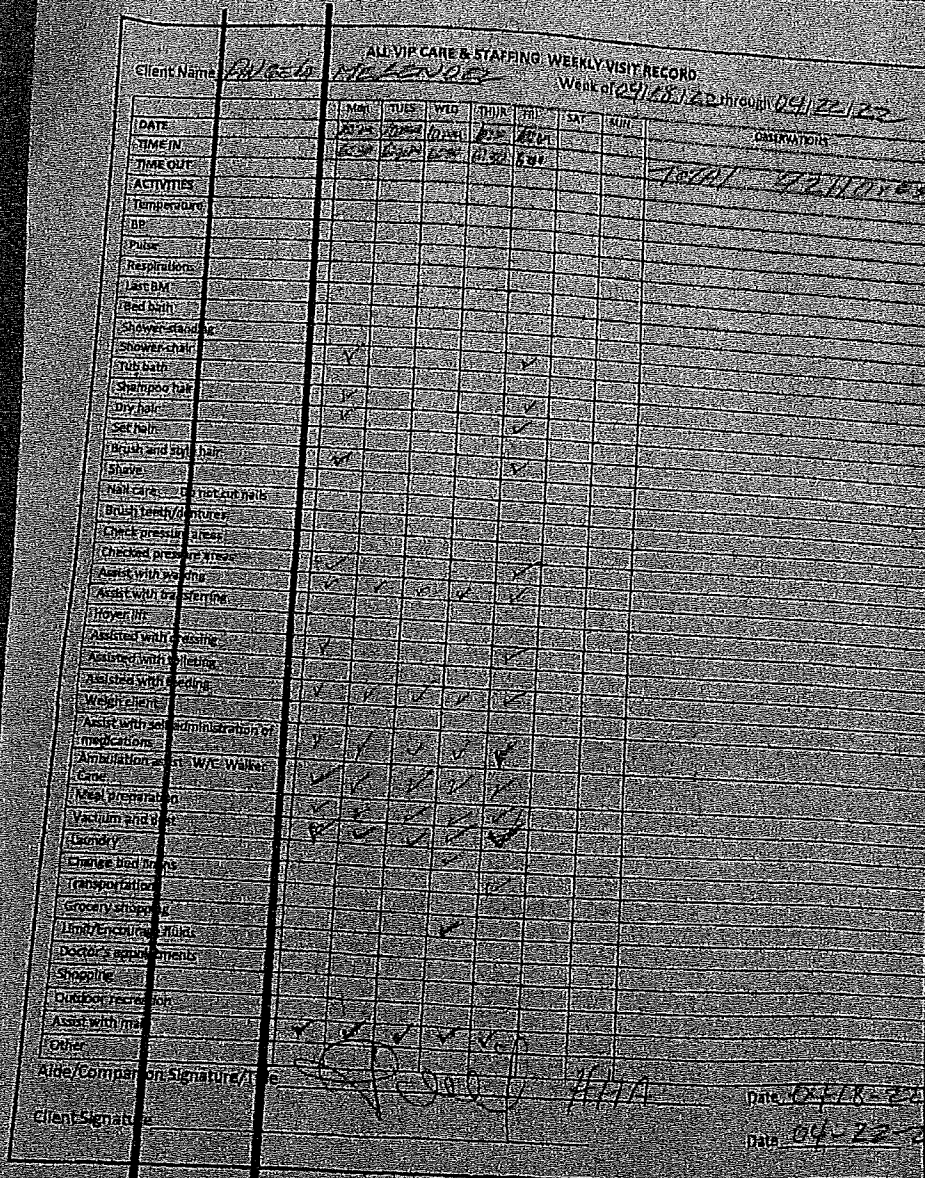 ALL VIP CARE & STAFFING WEEKLY VISIT RECORD
Client Name
Week of 04/18/22 through 04/22/22
Mon TUES WED THUR FRI SAT SUN OBSERVATIONS
DATE
TIME IN
TIME OUT Total
ACTIVITIES
Temperature
BP
Pulse
Respirations
Last BM
Bed bath
Shower-standing
Shower-chair ✓ ✓
Tub bath
Shampoo hair ✓ ✓
Dry hair ✓ ✓
Set hair
Brush and style hair ✓ ✓
Shave
Nail care: Do not cut nails
Brush teeth/dentures
Check pressure areas
Checked pressure areas ✓ ✓
Assist with walking ✓ ✓ ✓ ✓ ✓
Assist with transferring
Hoyer lift
Assisted with dressing ✓ ✓
Assisted with toileting
Assisted with feeding ✓ ✓ ✓ ✓ ✓
Weigh client
Assist with self administration of
medications ✓ ✓ ✓ ✓ ✓
Ambulation assist W/C Walker
Cane ✓ ✓ ✓ ✓ ✓
Meal preparation ✓ ✓ ✓ ✓ ✓
Vacuum and dust ✓ ✓ ✓ ✓ ✓
Laundry ✓
Change bed linens ✓
Transportation
Grocery shopping ✓
Limit/Encourage fluids
Doctor's appointments
Shopping
Outdoor recreation
Assist with mail ✓ ✓ ✓ ✓ ✓
Other
Aide/Companion Signature/Title HHA Date 04-18-22
Client Signature Date 04-22-2